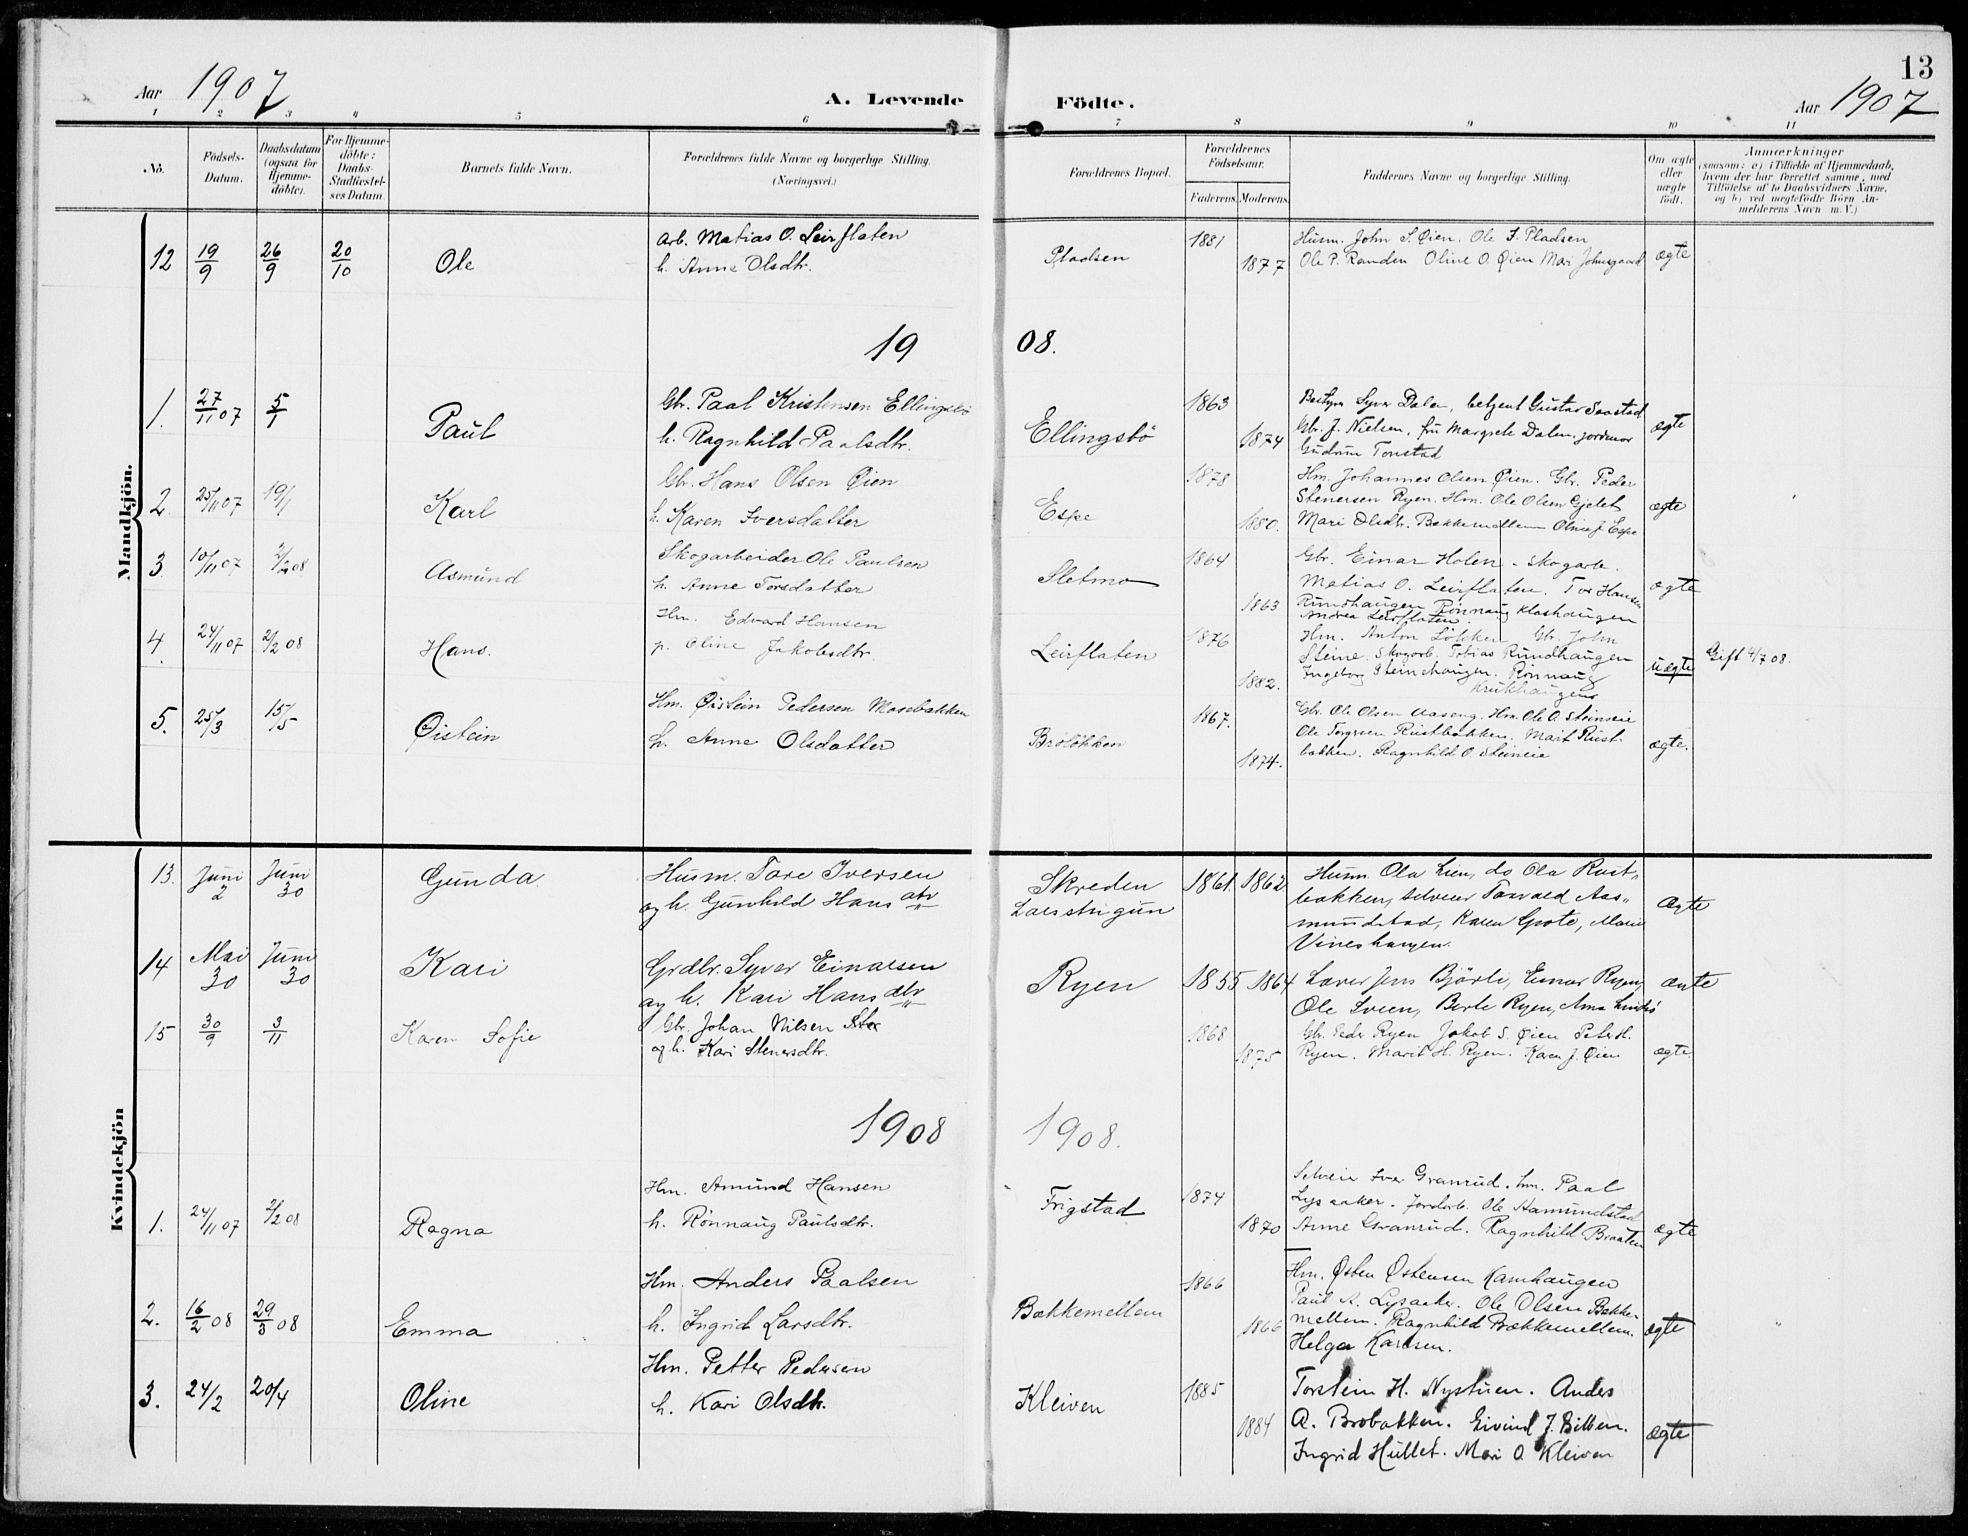 13
Aar 1907
A. Levende Födte.
Aar 1907
1 2 3 4 5 6 7 8 9 10 11
No.
Födsels-Datum.
Daabsdatum (ogsaa for Hjemme-döbte).
For Hjemme-döbte: Daabs-Stadfæstel-ses Datum.
Barnets fulde Navn.
Forældrenes fulde Navne og borgerlige Stilling.
(Næringsvei.)
Forældrenes Bopæl.
Forældrenes Födselsaar.
Faderens. Moderens.
Faddernes Navne og borgerlige Stilling.
Om ægte eller uægte födt.
Anmærkninger
(saasom: a) i Tilfælde af Hjemmedaab, hvem der har forrettet samme, med Tilföielse af to Daabsvidners Navne, og b) ved uægtefödte Börn An-melderens Navn m. V.)
Mandkjön.
12 19/9 26/9 20/10 Ole
Arb. Matias O. Leirflaten
h. Anne Olsdtr.
Pladsen 1881 1877
Husm. John S. Øien. Ole J. Pladsen
Ole P. Randen Oline O. Øien Mari Johnsgaard
ægte
1908.
1. 27/11 07 5/1 Paul
Gbr. Paal Kristensen Ellingsbö
h. Ragnhild Paalsdtr.
Ellingsbö 1863 1874
Bestyrer Syver Dalen, betjent Gustav Saastad
Gbr. J. Nielsen, fru Margrete Dalen, jordmor
Gudrun Tonstad
ægte
2. 25/11 07 19/1 Karl
Gbr. Hans Olsen Øien
h. Karen Iversdatter
Espe 1878 1880.
Hm. Johannes Olsen Øien. Gbr. Peder
Stenersen Ryen. Hm. Ole Olsen Gjelet
Mari Olsdtr. Bækkemellem Oline J. Espe
ægte
3. 10/11 07 2/2 08 Asmund
Skogarbeider Ole Paulsen
h. Anne Torsdatter
Sletmo 1864 1863
Gbr. Einar Holen - Skogarb.
Matias O. Leirflaten. Tor Hansen
Rundhaugen Rönnaug Klashaugen
Andrea Leirflaten.
ægte
4. 24/11 07 2/2 08 Hans.
Hm. Edvard Hansen
p. Oline Jakobsdtr.
Leirflaten 1876 1882.
Hm. Anton Lökken Gbr. John
Steine. Skogarb. Tobias Rundhaugen
Ingeborg Steinehaugen. Rönnaug
Krukhaugen
uægte
Gift 4/7 08.
5. 25/3 15/5 Øistein
Hm. Øistein Pedersen Mosebakken
h. Anne Olsdatter
Brolökken 1867. 1874.
Gbr. Ole Olsen Aaseng. Hm. Ole O. Steinseie
Ole Torgersen Rustbakken. Marit Rust-
bakken. Ragnhild O. Steinseie
ægte.
Kvindekjön
13. Juni 2 Juni 30 Gunda
Husm. Tore Iversen
og h. Gunhild Hansdtr
Skreden 1861. 1862
Husm. Ola Lien, do Ola Rust-
bakken, selveier Torvald Aas-
mundstad, Karen Grote, Marie
Vineshaugen.
Ægte
14 Mai 30 Juni 30 Kari
Grdbr. Syver Einarsen
og h. Kari Hansdtr
Ryen 1855 1864
Lærer Jens Björli, Einar Ryen,
Ole Sveen, Berte Ryen, Anna
ægte
15 30/9 3/11 Karen Sofie
Gbr. Johan Nilsen
og h. Kari Stenersdtr.
1868 1875
Gbr. Peder Ryen Jakob S. Øien Peter H.
Ryen. Marit H. Ryen. Karen J. Øien
ægte
1908 1908.
1. 24/11 07 2/2 08 Ragna
Hm. Amund Hansen
h. Rönnaug Paulsdtr.
Frigstad 1874 1870
Selveier Iver Granrud. hm. Paal
Lysaaker. Jordarb. Ole Aamundstad
Anne Granrud. Ragnhild Braaten
ægte
2. 16/2 08 29/3 08 Emma
Hm. Anders Paalsen
h. Ingrid Larsdtr.
Bækkemellem 1866 1866
Hm. Østen Østensen Kamhaugen
Paul A. Lysaaker. Ole Olsen Bække-
mellem. Ragnhild Bækkemellem.
Helga Karlsen.
ægte
3. 24/2 20/4 Oline
Hm. Petter Pedersen
h. Kari Olsdtr.
Kleiven 1885 1884
Torstein H. Nystuen. Anders
A. Brobakken. Eivind J. Bilben.
Ingrid Hullet. Mari O. Kleiven
ægte